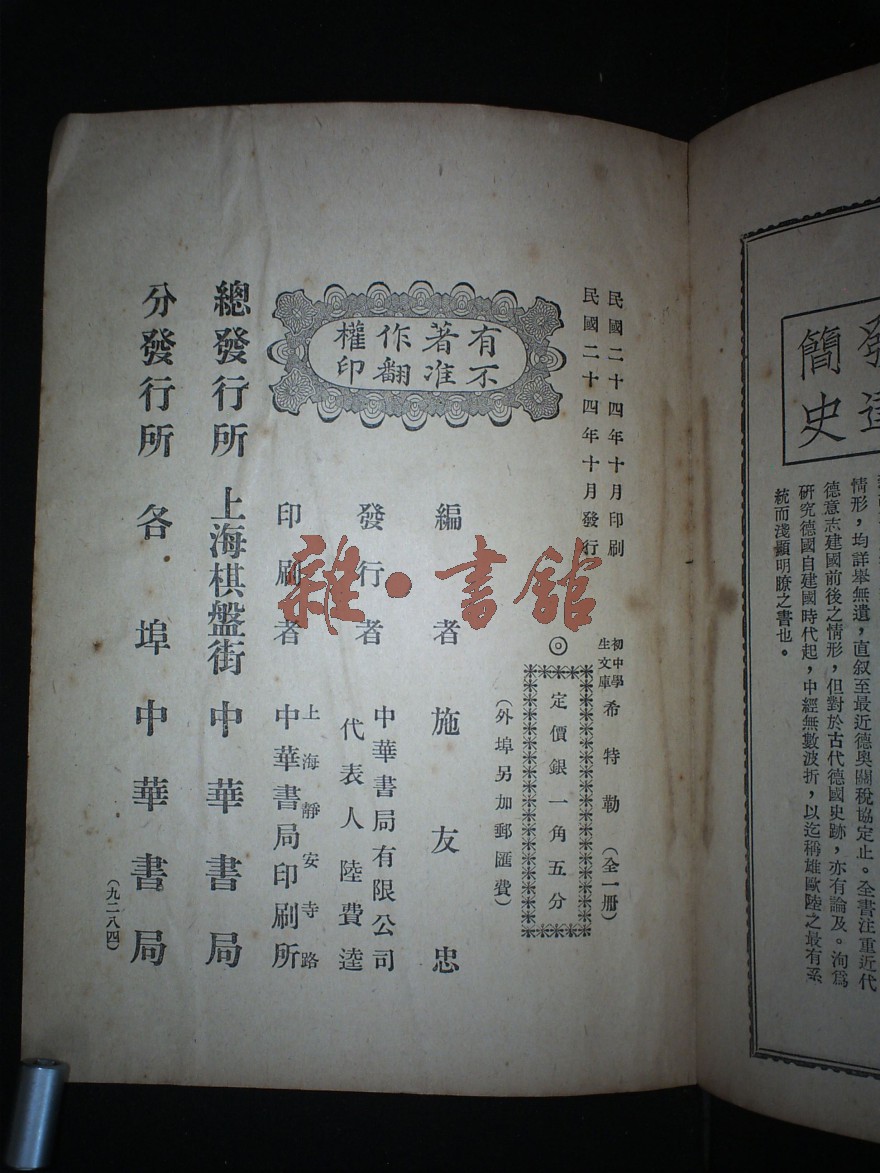 民國二十四年十月印刷
民國二十四年十月發行
初中學
生文庫
希特勒(全一册)
◎
定價銀一角五分
(外埠另加郵匯費)
有著作權
不准翻印
編者施友忠
發行者
中華書局有限公司
代表人陸費逵
印刷者
上海靜安寺路
中華書局印刷所
總發行所 上海棋盤街 中華書局
分發行所 各埠中華書局
(九二八四)
雜·書館
簡史
情形,均詳舉無遺,直叙至最近德奥關稅協定止。全書注重近代
德意志建國前後之情形,但對於古代德國史跡,亦有論及。洵爲
研究德國自建國時代起,中經無數波折,以迄稱雄歐陸之最有系
統而淺顯明瞭之書也。